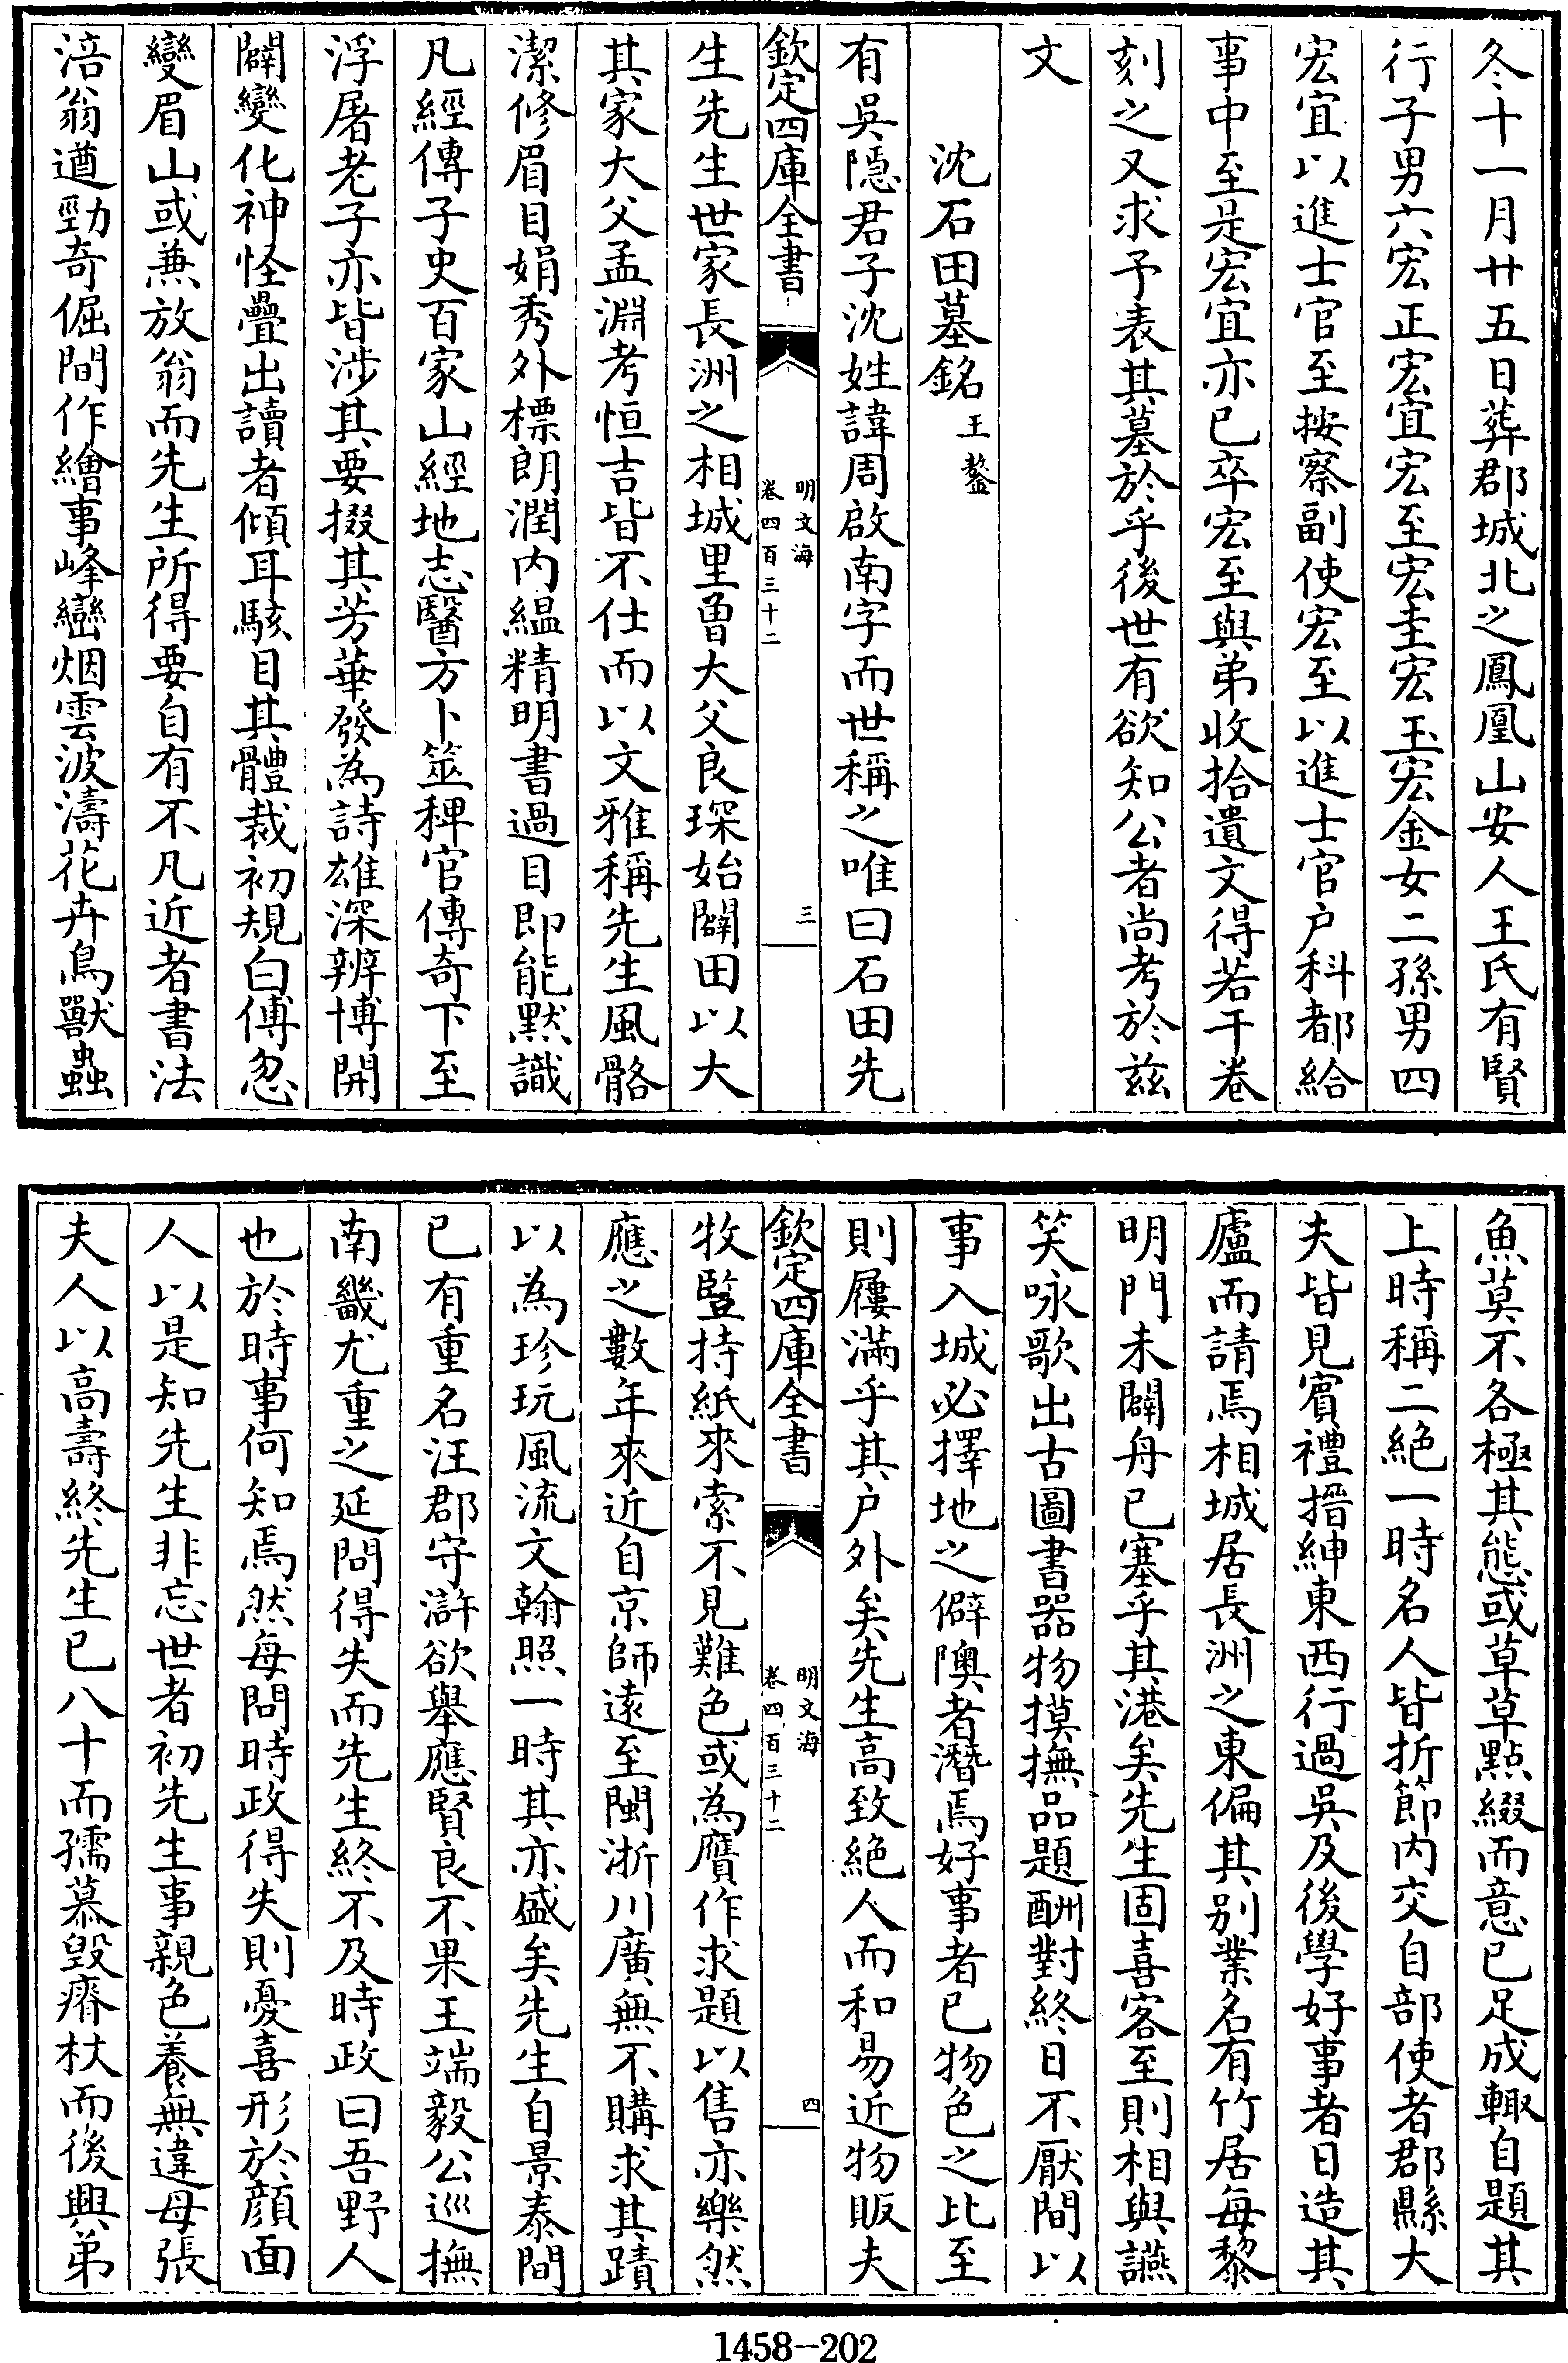 冬十一月廿五日葬郡城北之鳳凰山安人王氏有賢
行子男六宏正宏宜宏至宏圭宏玉宏金女二孫男四
宏宜以進士官至按察副使宏至以進士官户科都給
事中至是宏宜亦已卒宏至與弟收拾遺文得若干卷
刻之又求予表其墓於乎後世有欲知公者尚考於兹
文
沈石田墓銘王鏊
有吳隱君子沈姓諱周啟南字而世稱之唯曰石田先
欽定四庫全書
明文海
卷四百三十二
三
生先生世家長洲之相城里曾大父良琛始闢田以大
其家大父孟淵考恒吉皆不仕而以文雅稱先生風骼
潔修眉目娟秀外標朗潤内緼精明書過目即能默識
凡經傳子史百家山經地志醫方卜筮稗官傳奇下至
浮屠老子亦皆涉其要掇其芳華發為詩雄深辨博開
闢變化神怪疊出讀者傾耳駭目其體裁初規白傅忽
變眉山或兼放翁而先生所得要自有不凡近者書法
涪翁遒勁奇倔間作繪事峰巒烟雲波濤花卉鳥獸蟲
魚莫不各極其態或草草點綴而意已足成輙自題其
上時稱二絶一時名人皆折節内交自部使者郡縣大
夫皆見賓禮搢紳東西行過吳及後學好事者日造其
廬而請焉相城居長洲之東偏其别業名有竹居每黎
明門未闢舟已塞乎其港矣先生固喜客至則相與讌
笑咏歌出古圖書噐物摸撫品題酬對終日不厭間以
事入城必擇地之僻隩者潛焉好事者已物色之比至
則屨滿乎其户外矣先生高致絶人而和易近物販夫
欽定四庫全書
明文海
卷四百三十二
四
牧豎持紙來索不見難色或為贗作求題以售亦樂然
應之數年來近自京師遠至閩浙川廣無不購求其蹟
以為珍玩風流文翰照一時其亦盛矣先生自景泰間
已有重名汪郡守滸欲舉應賢良不果王端毅公巡撫
南畿尤重之延問得失而先生終不及時政曰吾野人
也於時事何知焉然每問時政得失則憂喜形於顔面
人以是知先生非忘世者初先生事親色養無違母張
夫人以高壽終先生已八十而孺慕毁瘠杖而後興弟
1458-202